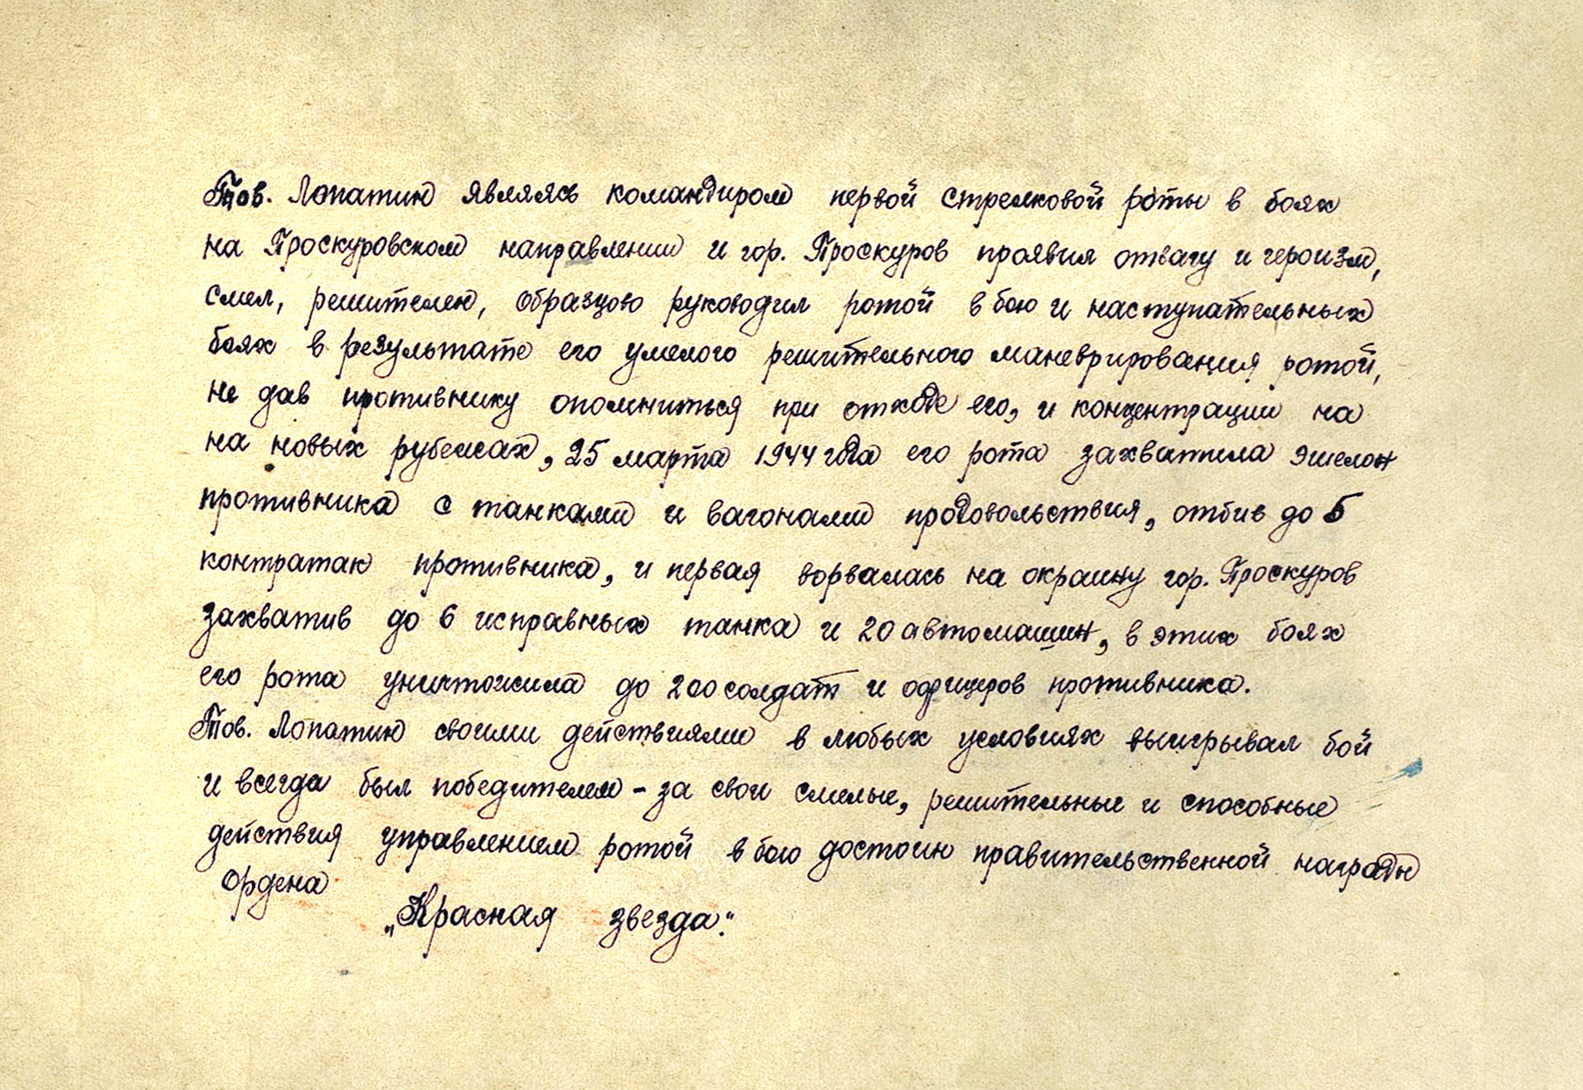 Тов. Лопатин являясь командиром первой стрелковой роты в боях
на Проскуровском направлении и гор. Проскуров проявил отвагу и героизм,
смел, решителен, образцово руководил ротой в бою и наступательных
боях в результате его умелого решительного маневрирования ротой,
не дав противнику опомниться при отходе его, и концентрации на
на новых рубежах, 25 марта 1944 года его рота захватила эшелон
противника с танками и вагонами продовольствия, отбив до 5
контратак противника, и первая ворвалась на окраину гор. Проскуров
захватив до 6 исправных танка и 20 автомашин, в этих боях
его рота уничтожила до 200 солдат и офицеров противника.
Тов. Лопатин своими действиями в любых условиях выигрывал бой
и всегда был победителем - за свои смелые, решительные и способные
действия управлением ротой в бою достоин правительственной награды
Ордена
„Красная звезда."